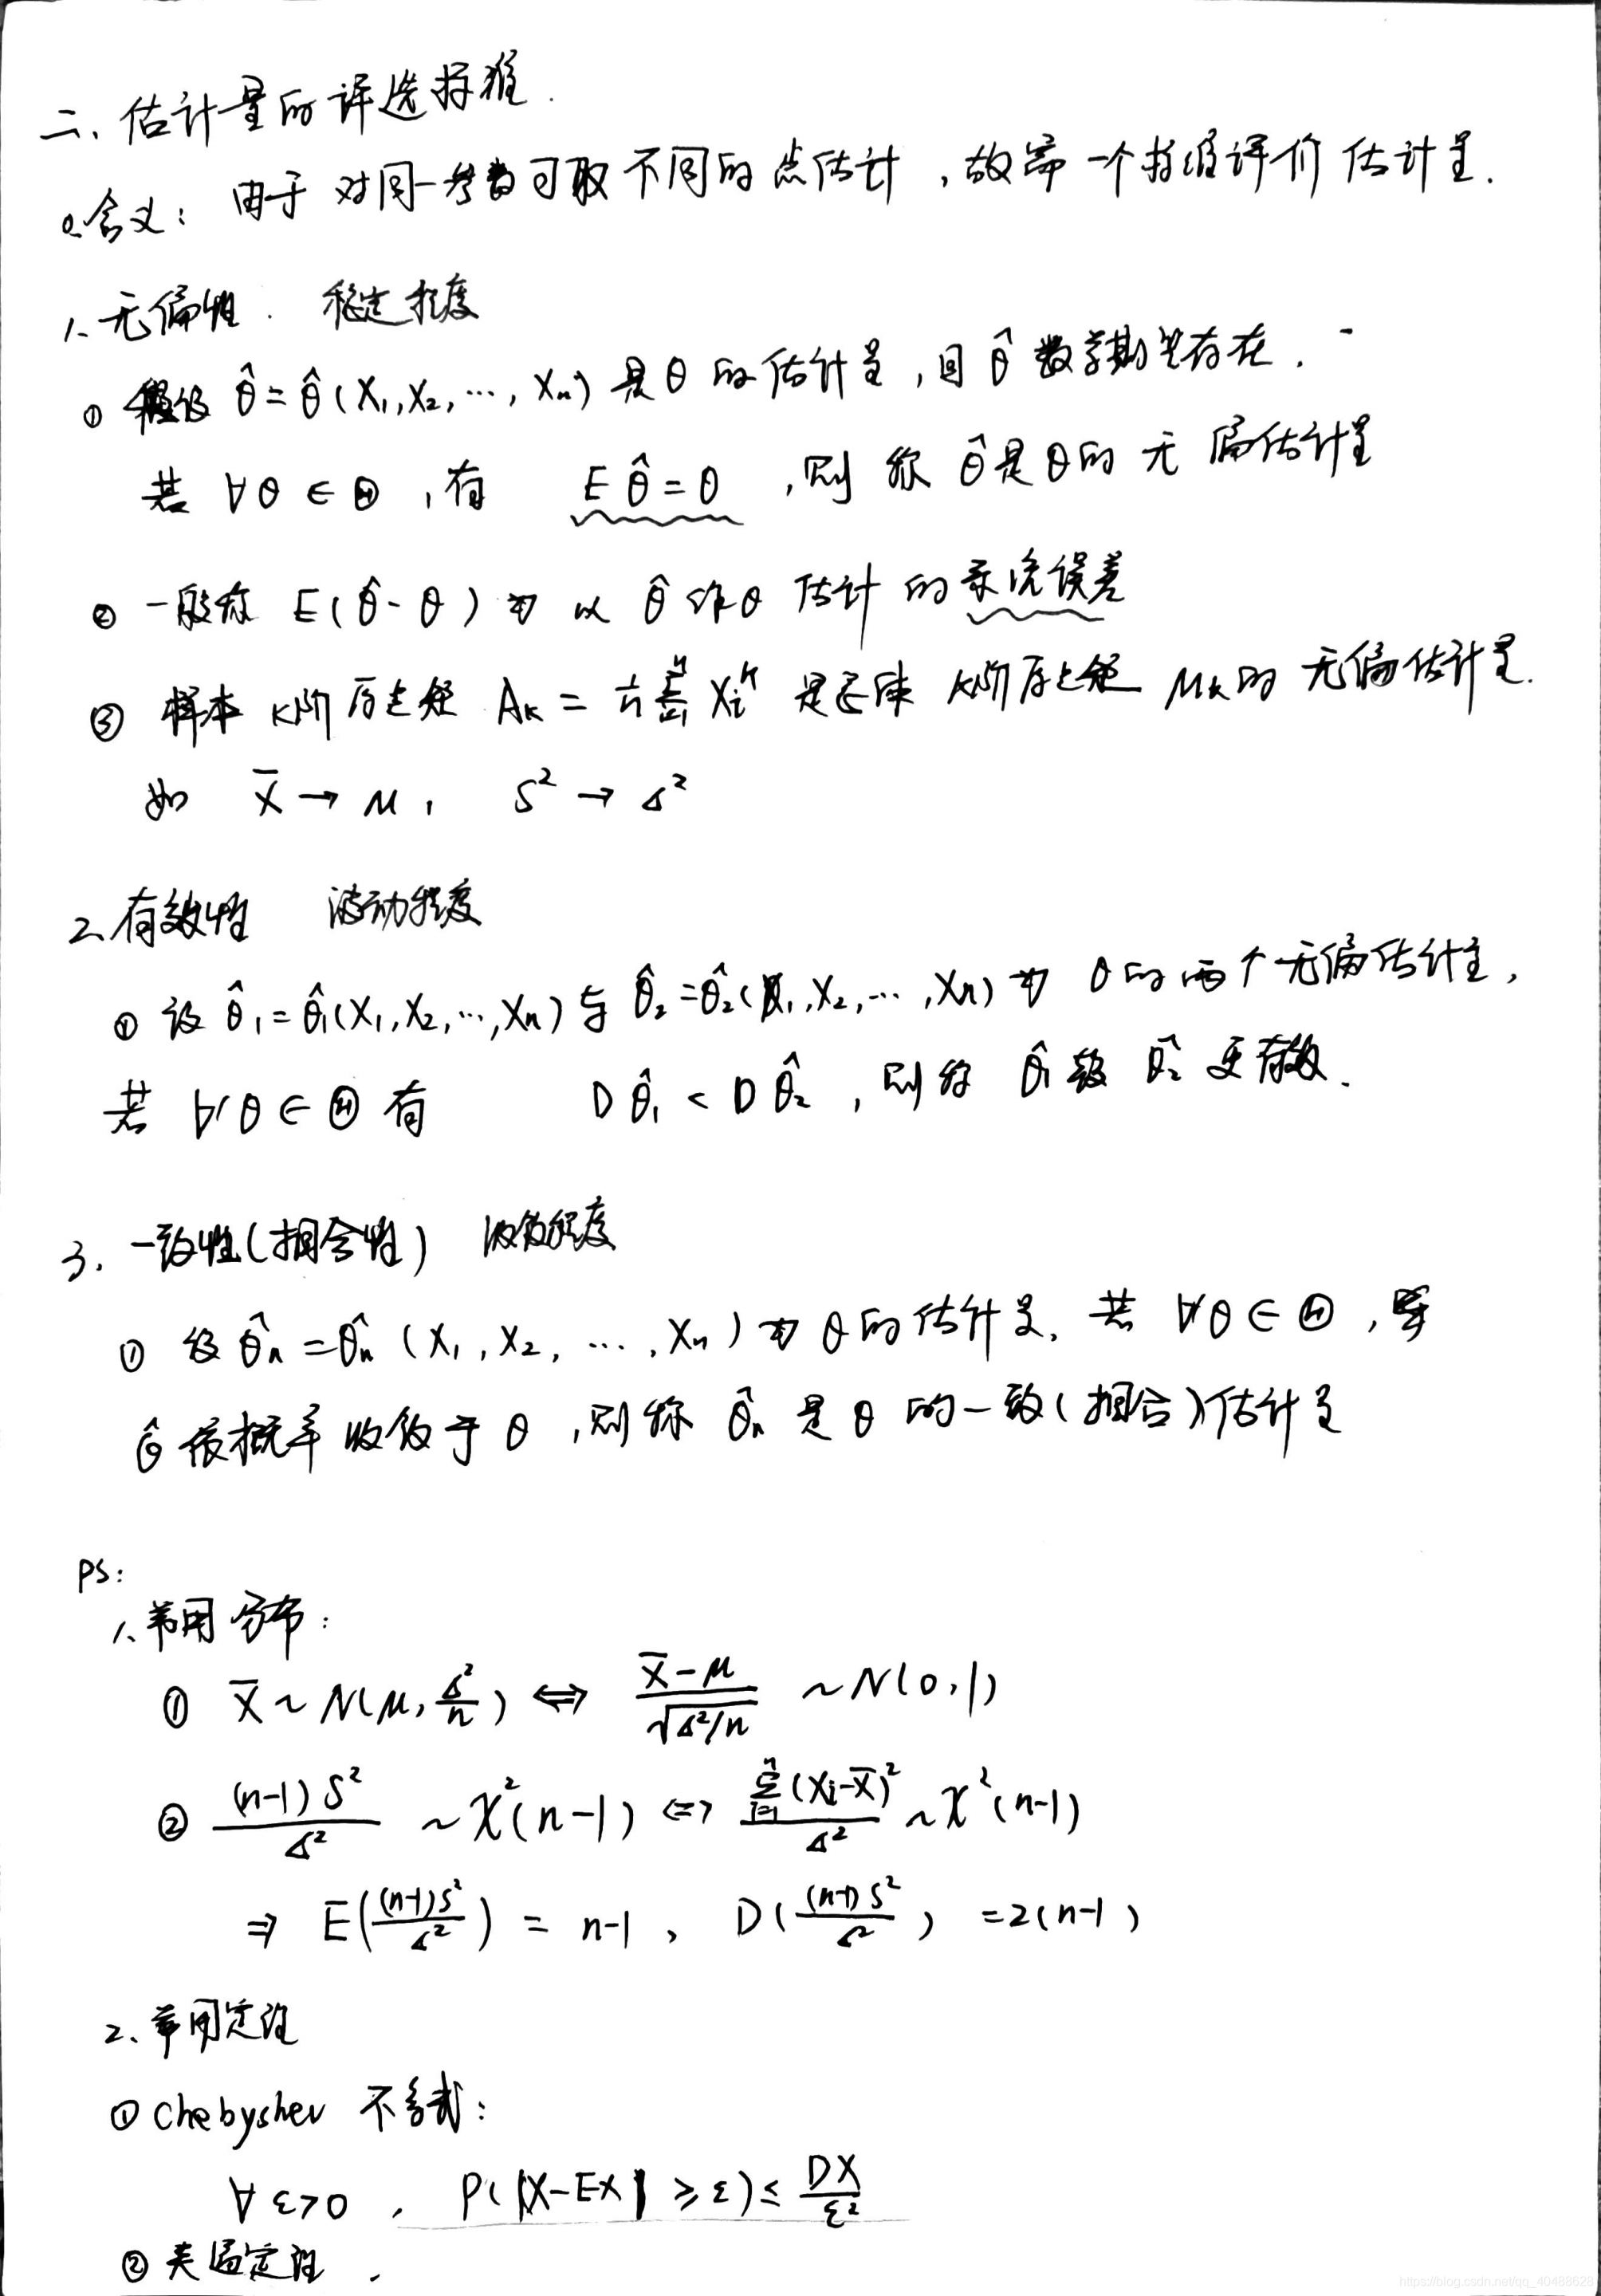 二、估计量的评选标准.
0.含义: 由于对同一参数可取不同的点估计,故需一个标准评价估计量.
1、无偏性. 稳定程度
① 假设 θ̂=θ̂(X₁,X₂,…,Xₙ)是θ的估计量,且θ̂数学期望存在.
若 ∀θ∈Θ,有 Eθ̂=θ,则称θ̂是θ的无偏估计量
② 一般称 E(θ̂-θ)为以θ̂作θ估计的系统误差
③ 样本K阶原点矩 Aₖ = 1/n Σᵢ₌₁ⁿ Xᵢᵏ 是总体K阶原点矩 μₖ的无偏估计量.
如 X̄→μ, S²→σ²
2、有效性 波动程度
① 设 θ̂₁=θ̂₁(X₁,X₂,…,Xₙ)与θ̂₂=θ̂₂(X₁,X₂,…,Xₙ)为θ的两个无偏估计量,
若 ∀θ∈Θ有 Dθ̂₁<Dθ̂₂,则称θ̂₁较θ̂₂更有效.
3、一致性(相合性) 收敛程度
① 设θ̂ₙ=θ̂ₙ(X₁,X₂,…,Xₙ)为θ的估计量,若 ∀θ∈Θ,
θ̂依概率收敛于θ,则称θ̂ₙ是θ的一致(相合)估计量
PS:
1、常用分布:
① X̄~N(μ,σ²/n) ⟺ (X̄-μ)/√(σ²/n) ~N(0,1)
② (n-1)S²/σ² ~χ²(n-1) ⟺ Σᵢ₌₁ⁿ(Xᵢ-X̄)²/σ² ~χ²(n-1)
⇒ E((n-1)S²/σ²) = n-1, D((n-1)S²/σ²) =2(n-1)
2、常用定理
① Chebyshev 不等式:
∀ε>0, P(|X-EX|≥ε)≤DX/ε²
② 夹逼定理.
https://blog.csdn.net/qq_40488628